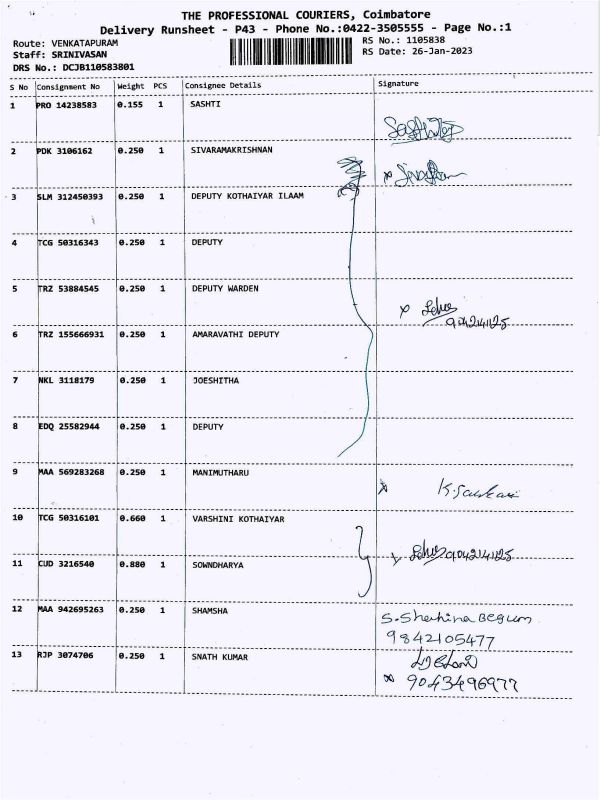 THE PROFESSIONAL COURIERS, Coimbatore
Delivery Runsheet - P43 - Phone No.:0422-3505555 - Page No.:1
Route: VENKATAPURAM RS No.: 1105838
Staff: SRINIVASAN RS Date: 26-Jan-2023
DRS No.: DCJB110583801
S No Consignment No Weight PCS Consignee Details Signature
1 PRO 14238583 0.155 1 SASHTI
2 PDK 3106162 0.250 1 SIVARAMAKRISHNAN
3 SLM 312450393 0.250 1 DEPUTY KOTHAIYAR ILAAM
4 TCG 50316343 0.250 1 DEPUTY
5 TRZ 53884545 0.250 1 DEPUTY WARDEN
9042141125
6 TRZ 155666931 0.250 1 AMARAVATHI DEPUTY
7 NKL 3118179 0.250 1 JOESHITHA
8 EDQ 25582944 0.250 1 DEPUTY
9 MAA 569283268 0.250 1 MANIMUTHARU
10 TCG 50316101 0.660 1 VARSHINI KOTHAIYAR
9042141125
11 CUD 3216540 0.880 1 SOWNDHARYA
12 MAA 942695263 0.250 1 SHAMSHA S. Shahina Begum
9842105477
13 RJP 3074706 0.250 1 SNATH KUMAR
9043496977